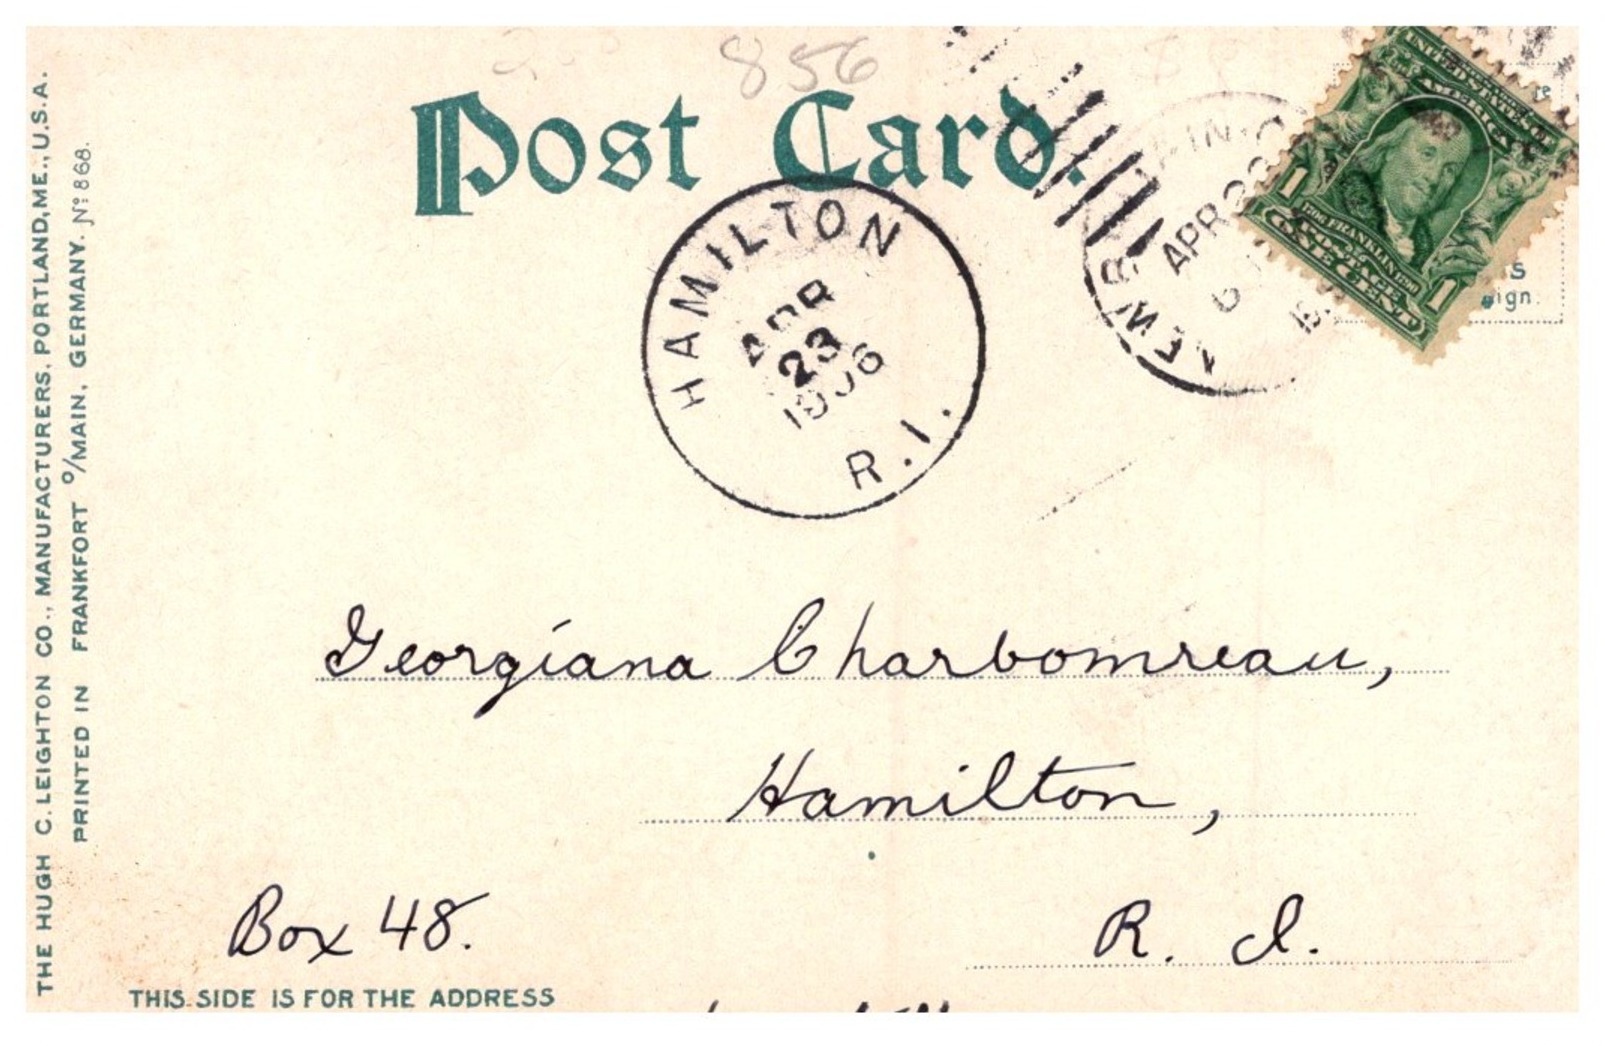 856
Post Card.
THE HUGH C. LEIGHTON CO., MANUFACTURERS, PORTLAND, ME., U.S.A.
PRINTED IN FRANKFORT o/MAIN, GERMANY. No 868.
HAMILTON
APR
23
1906
R.I.
APR
6
UNITED STATES OF
AMERICA
1706 FRANKLIN 1790
POSTAGE
1 ONE CENT 1
Georgiana Charbomreau,
Hamilton,
Box 48.
R. I.
THIS SIDE IS FOR THE ADDRESS